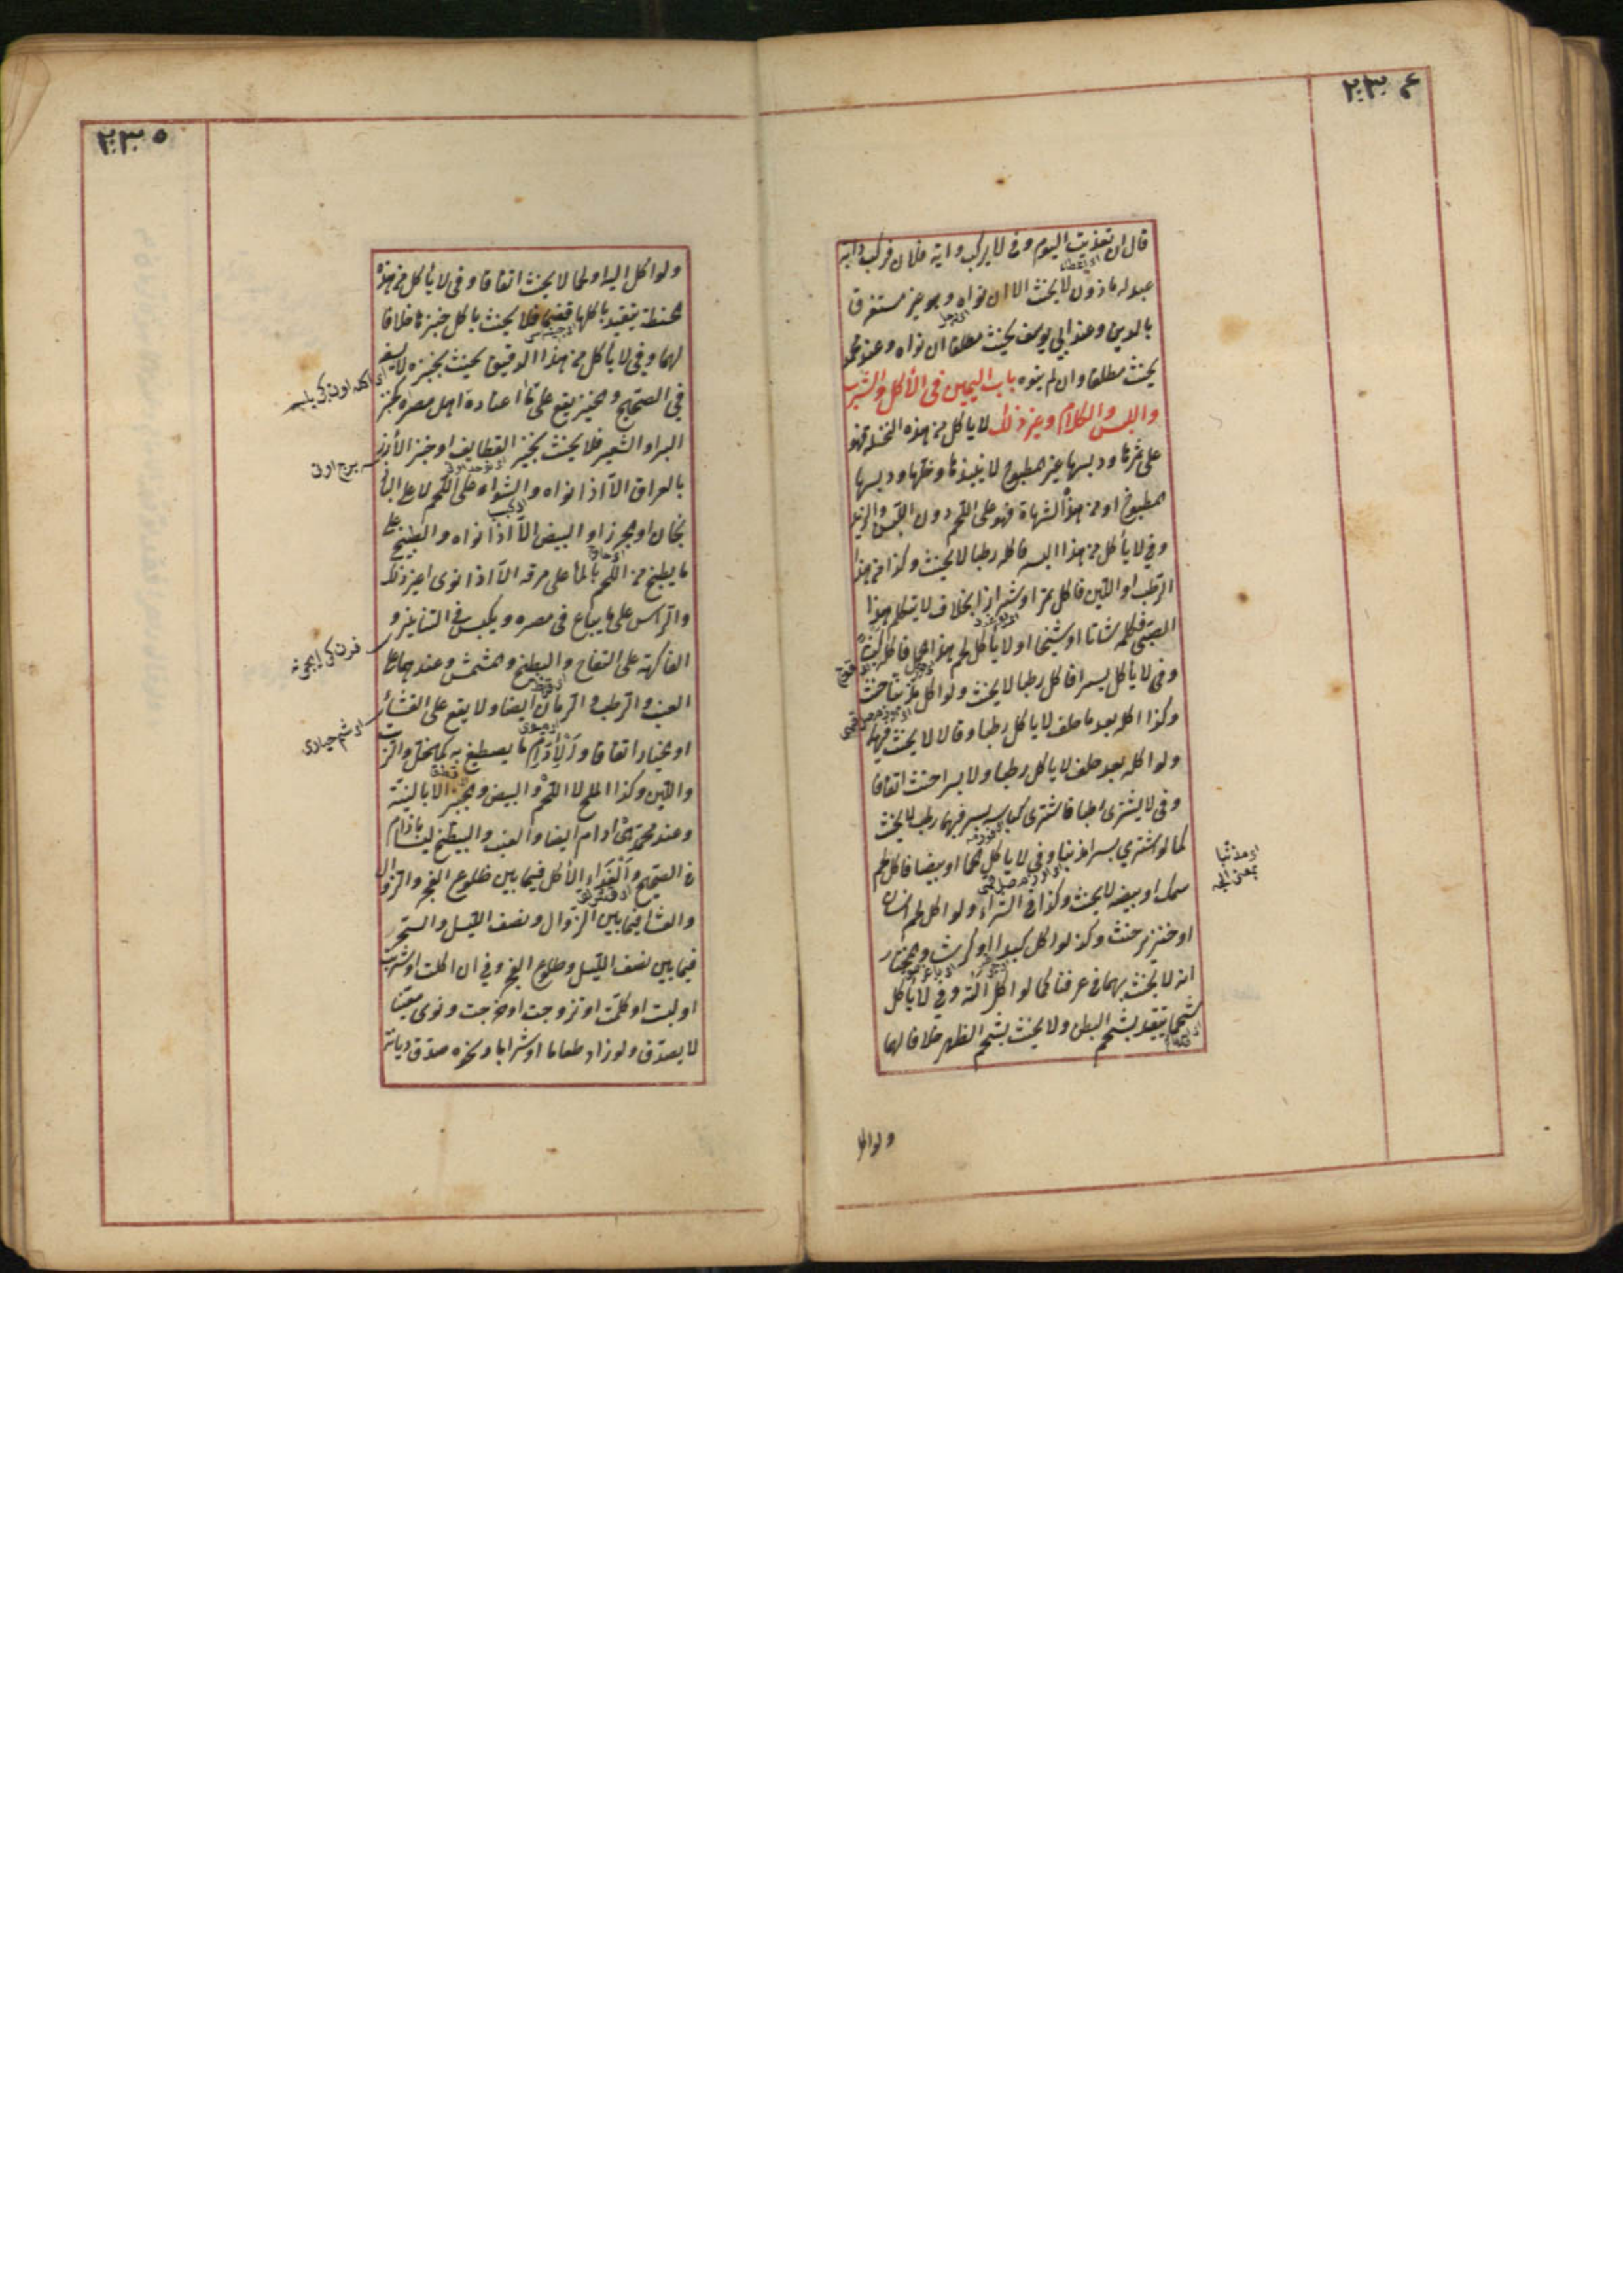 ٢٣٤
قال ان تغديت اليوم وفى لا يركب دابة فلان فركب دابة
عبد له ماذون لا يحنث الا ان نواه وهو غير مستغرق
بالدين وعند ابي يوسف يحنث مطلقا ان نواه وعند محمد
يحنث مطلقا وان لم ينوه باب اليمين فى الأكل والشرب
واللبس والكلام وغير ذلك لا ياكل من هذه النخلة فهو
على ثمرها ودبسها غير المطبوخ لا نبيذها وخلها ودبسها
المطبوخ او من هذه الشاة فهو على اللحم دون اللبن والزبد
وفى لا يأكل من هذا البسر فاكله رطبا لا يحنث وكذا من هذا
الرطب او اللبن فاكل تمرا او شيرازا بخلاف لا يتكلم هذا
الصبى فكلمه شابا او شيخا او لا يأكل لحم هذا الحمل فاكله كبشا
وفى لا يأكل بسرا فاكل رطبا لا يحنث ولو اكل مذنبا حنث
وكذا اكله بعد ما حلف لا ياكل رطبا وقالا لا يحنث فيهما
ولو اكله بعد حلف لا ياكل رطبا ولا بسرا حنث اتفاقا
وفى لا يشترى رطبا فاشترى كباسة بسر فيها رطب لا يحنث
كما لو اشترى بسرا مذنبا وفى لا ياكل لحما او بيضا فاكل لحم
سمك او بيضه لا يحنث وكذا فى الشراء ولو اكل لحم انسان
او خنزير حنث وكذا لو اكل كبدا او كرشا والمختار
انه لا يحنث بهما فى عرفنا كما لو اكل الية وفى لا ياكل
شحما يتقيد بشحم البطن ولا يحنث بشحم الظهر خلافا لهما
او مذنبا
ولو اكل
٢٣٥
ولو اكل الية او لحما لا يحنث اتفاقا وفى لا يأكل من هذه
الحنطة يتقيد باكلها قضما فلا يحنث باكل خبزها خلافا
لهما وفى لا يأكل من هذا الدقيق يحنث بخبزه لا بسفه
فى الصحيح والخبز يقع على ما اعتاده اهل مصره كخبز
البر او الشعير فلا يحنث بخبز القطايف او خبز الأرز
بالعراق الا اذا نواه والشواء على اللحم لا على الباذ
نجان او الجزر او البيض الا اذا نواه والطبيخ على
ما يطبخ من اللحم بالماء على مرقه الا اذا نوى غير ذلك
والرأس على ما يباع فى مصره ويكبس فى التنانير و
الفاكهة على التفاح والبطيخ والمشمش وعندهما على
العنب والرطب والرمان ايضا ولا يقع على القثاء
او الخيار اتفاقا والإدام ما يصطبغ به كالخل والزيت
واللبن وكذا الملح لا اللحم والبيض والجبن الا بالنية
وعند محمد هى ادام ايضا والعنب والبطيخ ليسا بادام
فى الصحيح والغداء الأكل فيما بين طلوع الفجر والزوال
والعشا فيما بين الزوال ونصف الليل والسحور
فيما بين نصف الليل وطلوع الفجر وفى ان اكلت او شربت
او لبست او كلمت او تزوجت او خرجت ونوى معينا
لا يصدق ولو زاد طعاما او شرابا ونحوه صدق ديانة